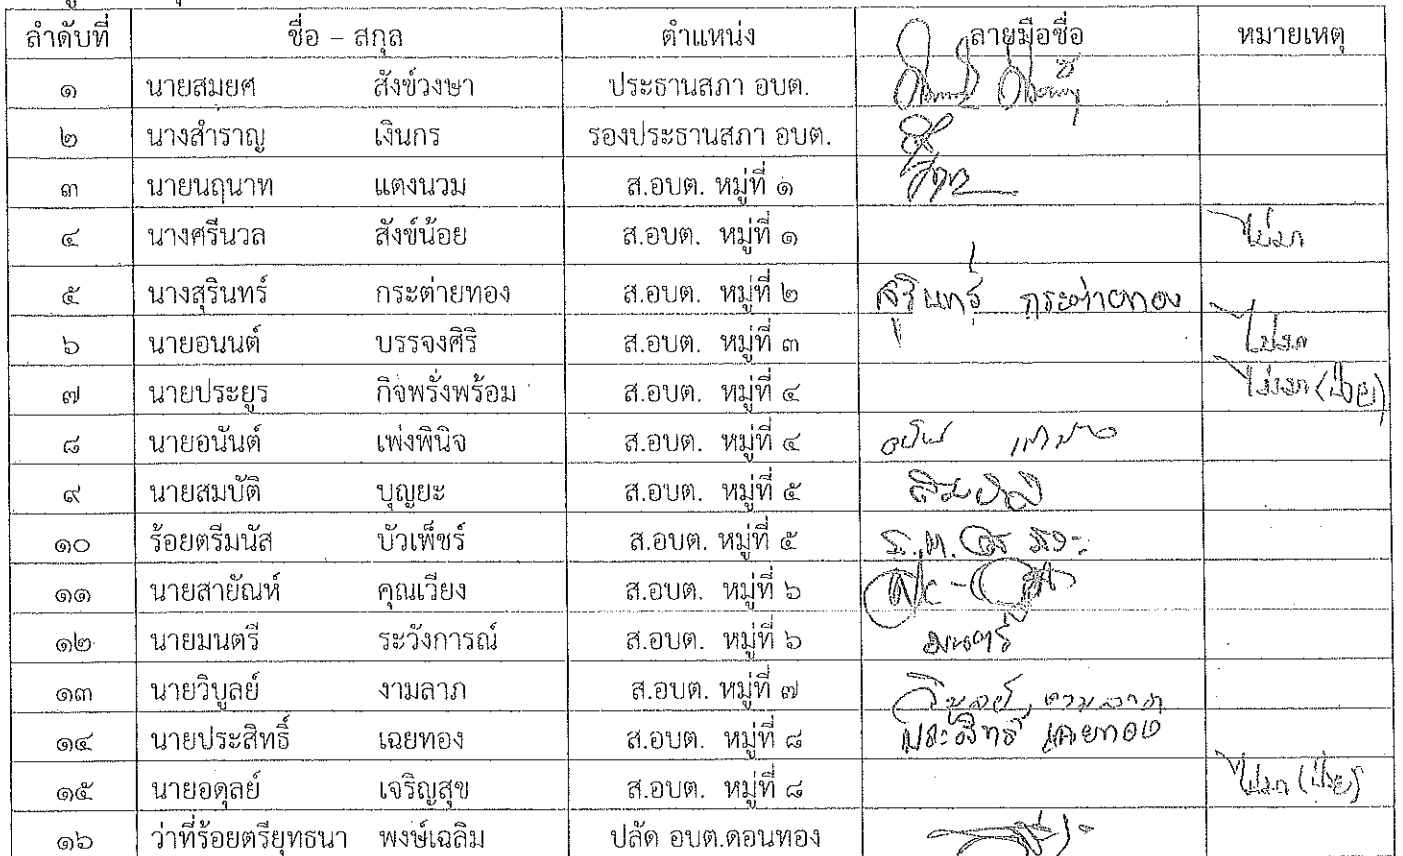 ลำดับที่ ชื่อ – สกุล ตำแหน่ง ลายมือชื่อ หมายเหตุ
๑ นายสมยศ สังข์วงษา ประธานสภา อบต.
๒ นางสำราญ เงินกร รองประธานสภา อบต.
๓ นายนฤนาท แตงนวม ส.อบต. หมู่ที่ ๑
๔ นางศรีนวล สังข์น้อย ส.อบต. หมู่ที่ ๑ ไม่มา
๕ นางสุรินทร์ กระต่ายทอง ส.อบต. หมู่ที่ ๒ สุรินทร์ กระต่ายทอง
๖ นายอนนต์ บรรจงศิริ ส.อบต. หมู่ที่ ๓ ไม่มา
๗ นายประยูร กิจพรั่งพร้อม ส.อบต. หมู่ที่ ๔ ไม่มา (ป่วย)
๘ นายอนันต์ เพ่งพินิจ ส.อบต. หมู่ที่ ๔
๙ นายสมบัติ บุญยะ ส.อบต. หมู่ที่ ๕
๑๐ ร้อยตรีมนัส บัวเพ็ชร์ ส.อบต. หมู่ที่ ๕
๑๑ นายสายัณห์ คุณเวียง ส.อบต. หมู่ที่ ๖
๑๒ นายมนตรี ระวังการณ์ ส.อบต. หมู่ที่ ๖ มนตรี
๑๓ นายวิบูลย์ งามลาภ ส.อบต. หมู่ที่ ๗ วิบูลย์ งามลาภ
๑๔ นายประสิทธิ์ เฉยทอง ส.อบต. หมู่ที่ ๘ ประสิทธิ์ เฉยทอง
๑๕ นายอดุลย์ เจริญสุข ส.อบต. หมู่ที่ ๘ ไม่มา (ป่วย)
๑๖ ว่าที่ร้อยตรียุทธนา พงษ์เฉลิม ปลัด อบต.ดอนทอง